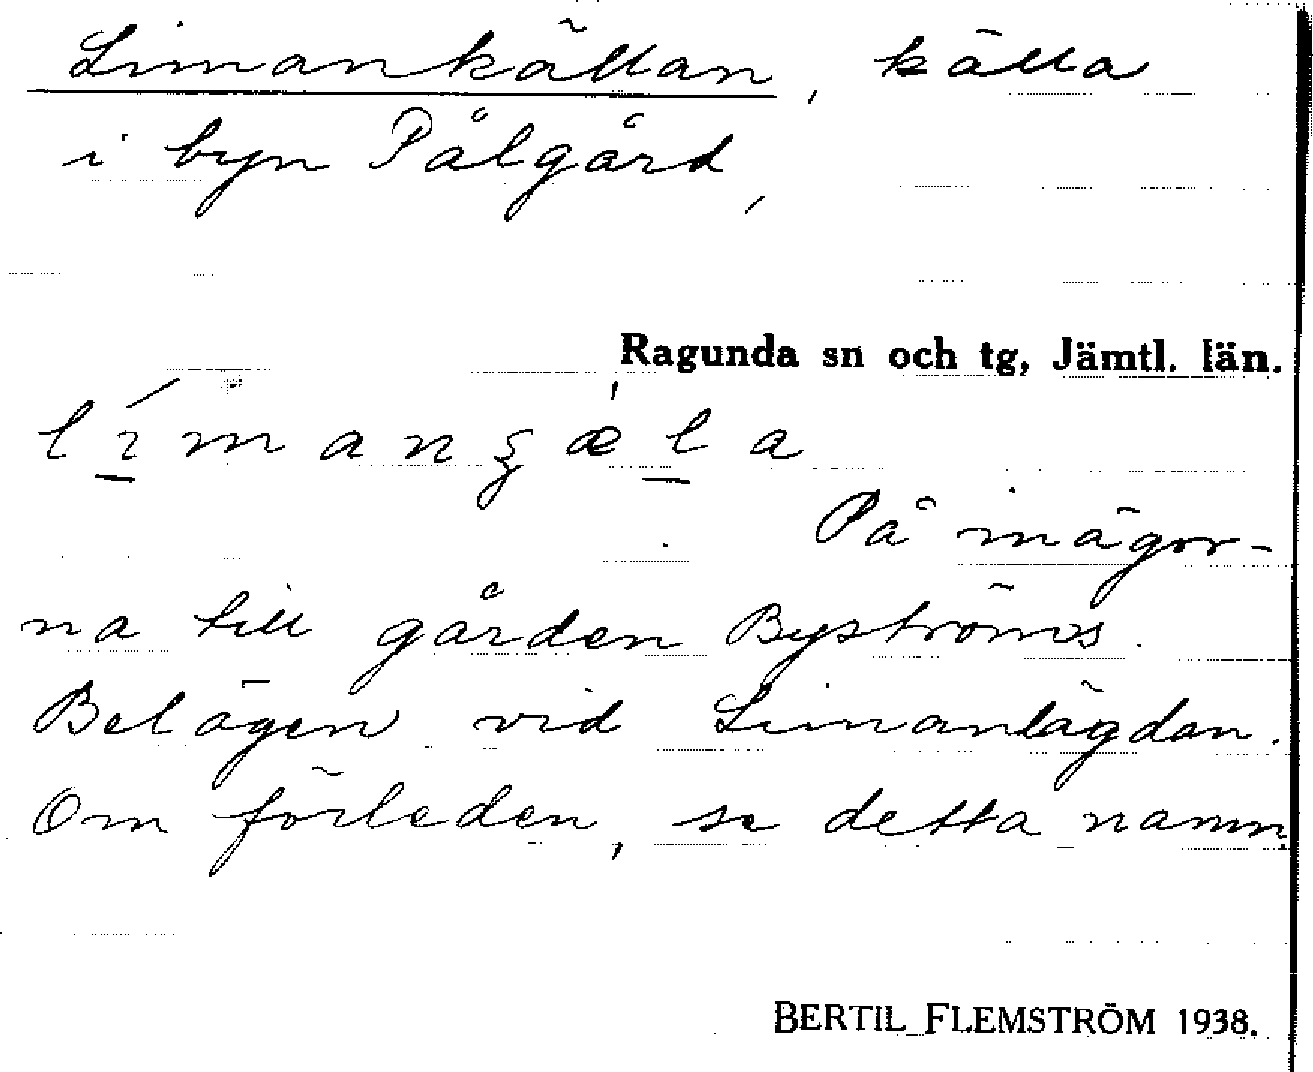 Limankällan, källa
i byn Pålgård,
Ragunda sn och tg, Jämtl. län.
På mägor-
na till gården Byströms.
Belägen vid Limanlägdan.
Om förleden, se detta namn.
BERTIL FLEMSTRÖM 1938.